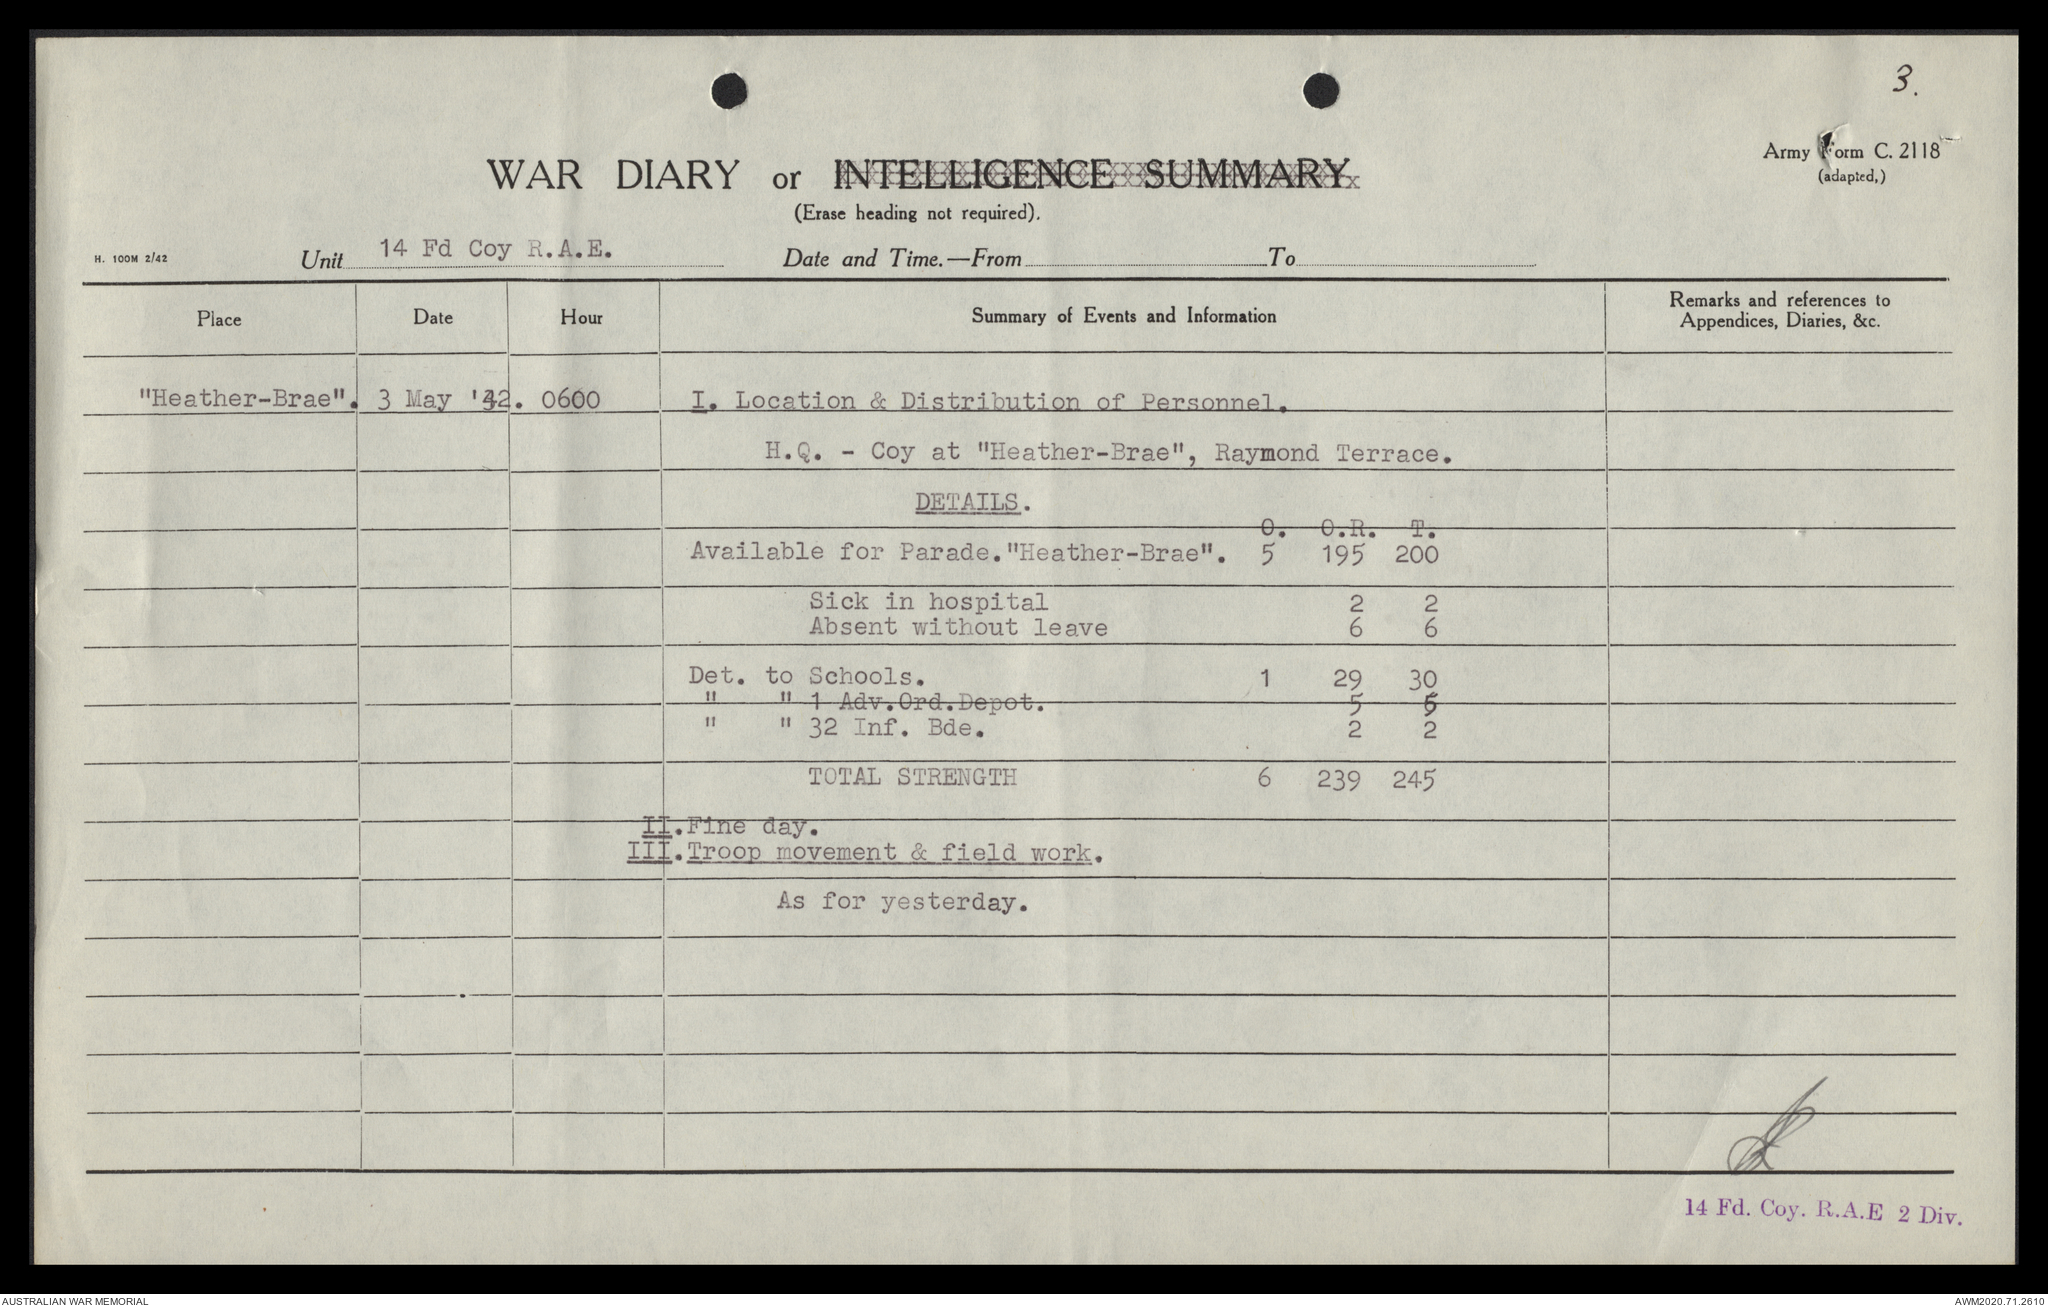 3.
Army Form C. 2118
(adapted,)
WAR DIARY or INTELLIGENCE SUMMARY
(Erase heading not required).
H. 100M 2/42
Unit 14 Fd Coy R.A.E. Date and Time.—From To
Place Date Hour Summary of Events and Information Remarks and references to
Appendices, Diaries, &c.
"Heather-Brae". 3 May '42. 0600 I. Location & Distribution of Personnel.
H.Q. - Coy at "Heather-Brae", Raymond Terrace.
DETAILS.
O. O.R. T.
Available for Parade."Heather-Brae". 5 195 200
Sick in hospital 2 2
Absent without leave 6 6
Det. to Schools. 1 29 30
" " 1 Adv.Ord.Depot. 5 5
" " 32 Inf. Bde. 2 2
TOTAL STRENGTH 6 239 245
II.Fine day.
III.Troop movement & field work.
As for yesterday.
14 Fd. Coy. R.A.E 2 Div.
AUSTRALIAN WAR MEMORIAL
AWM2020.71.2610